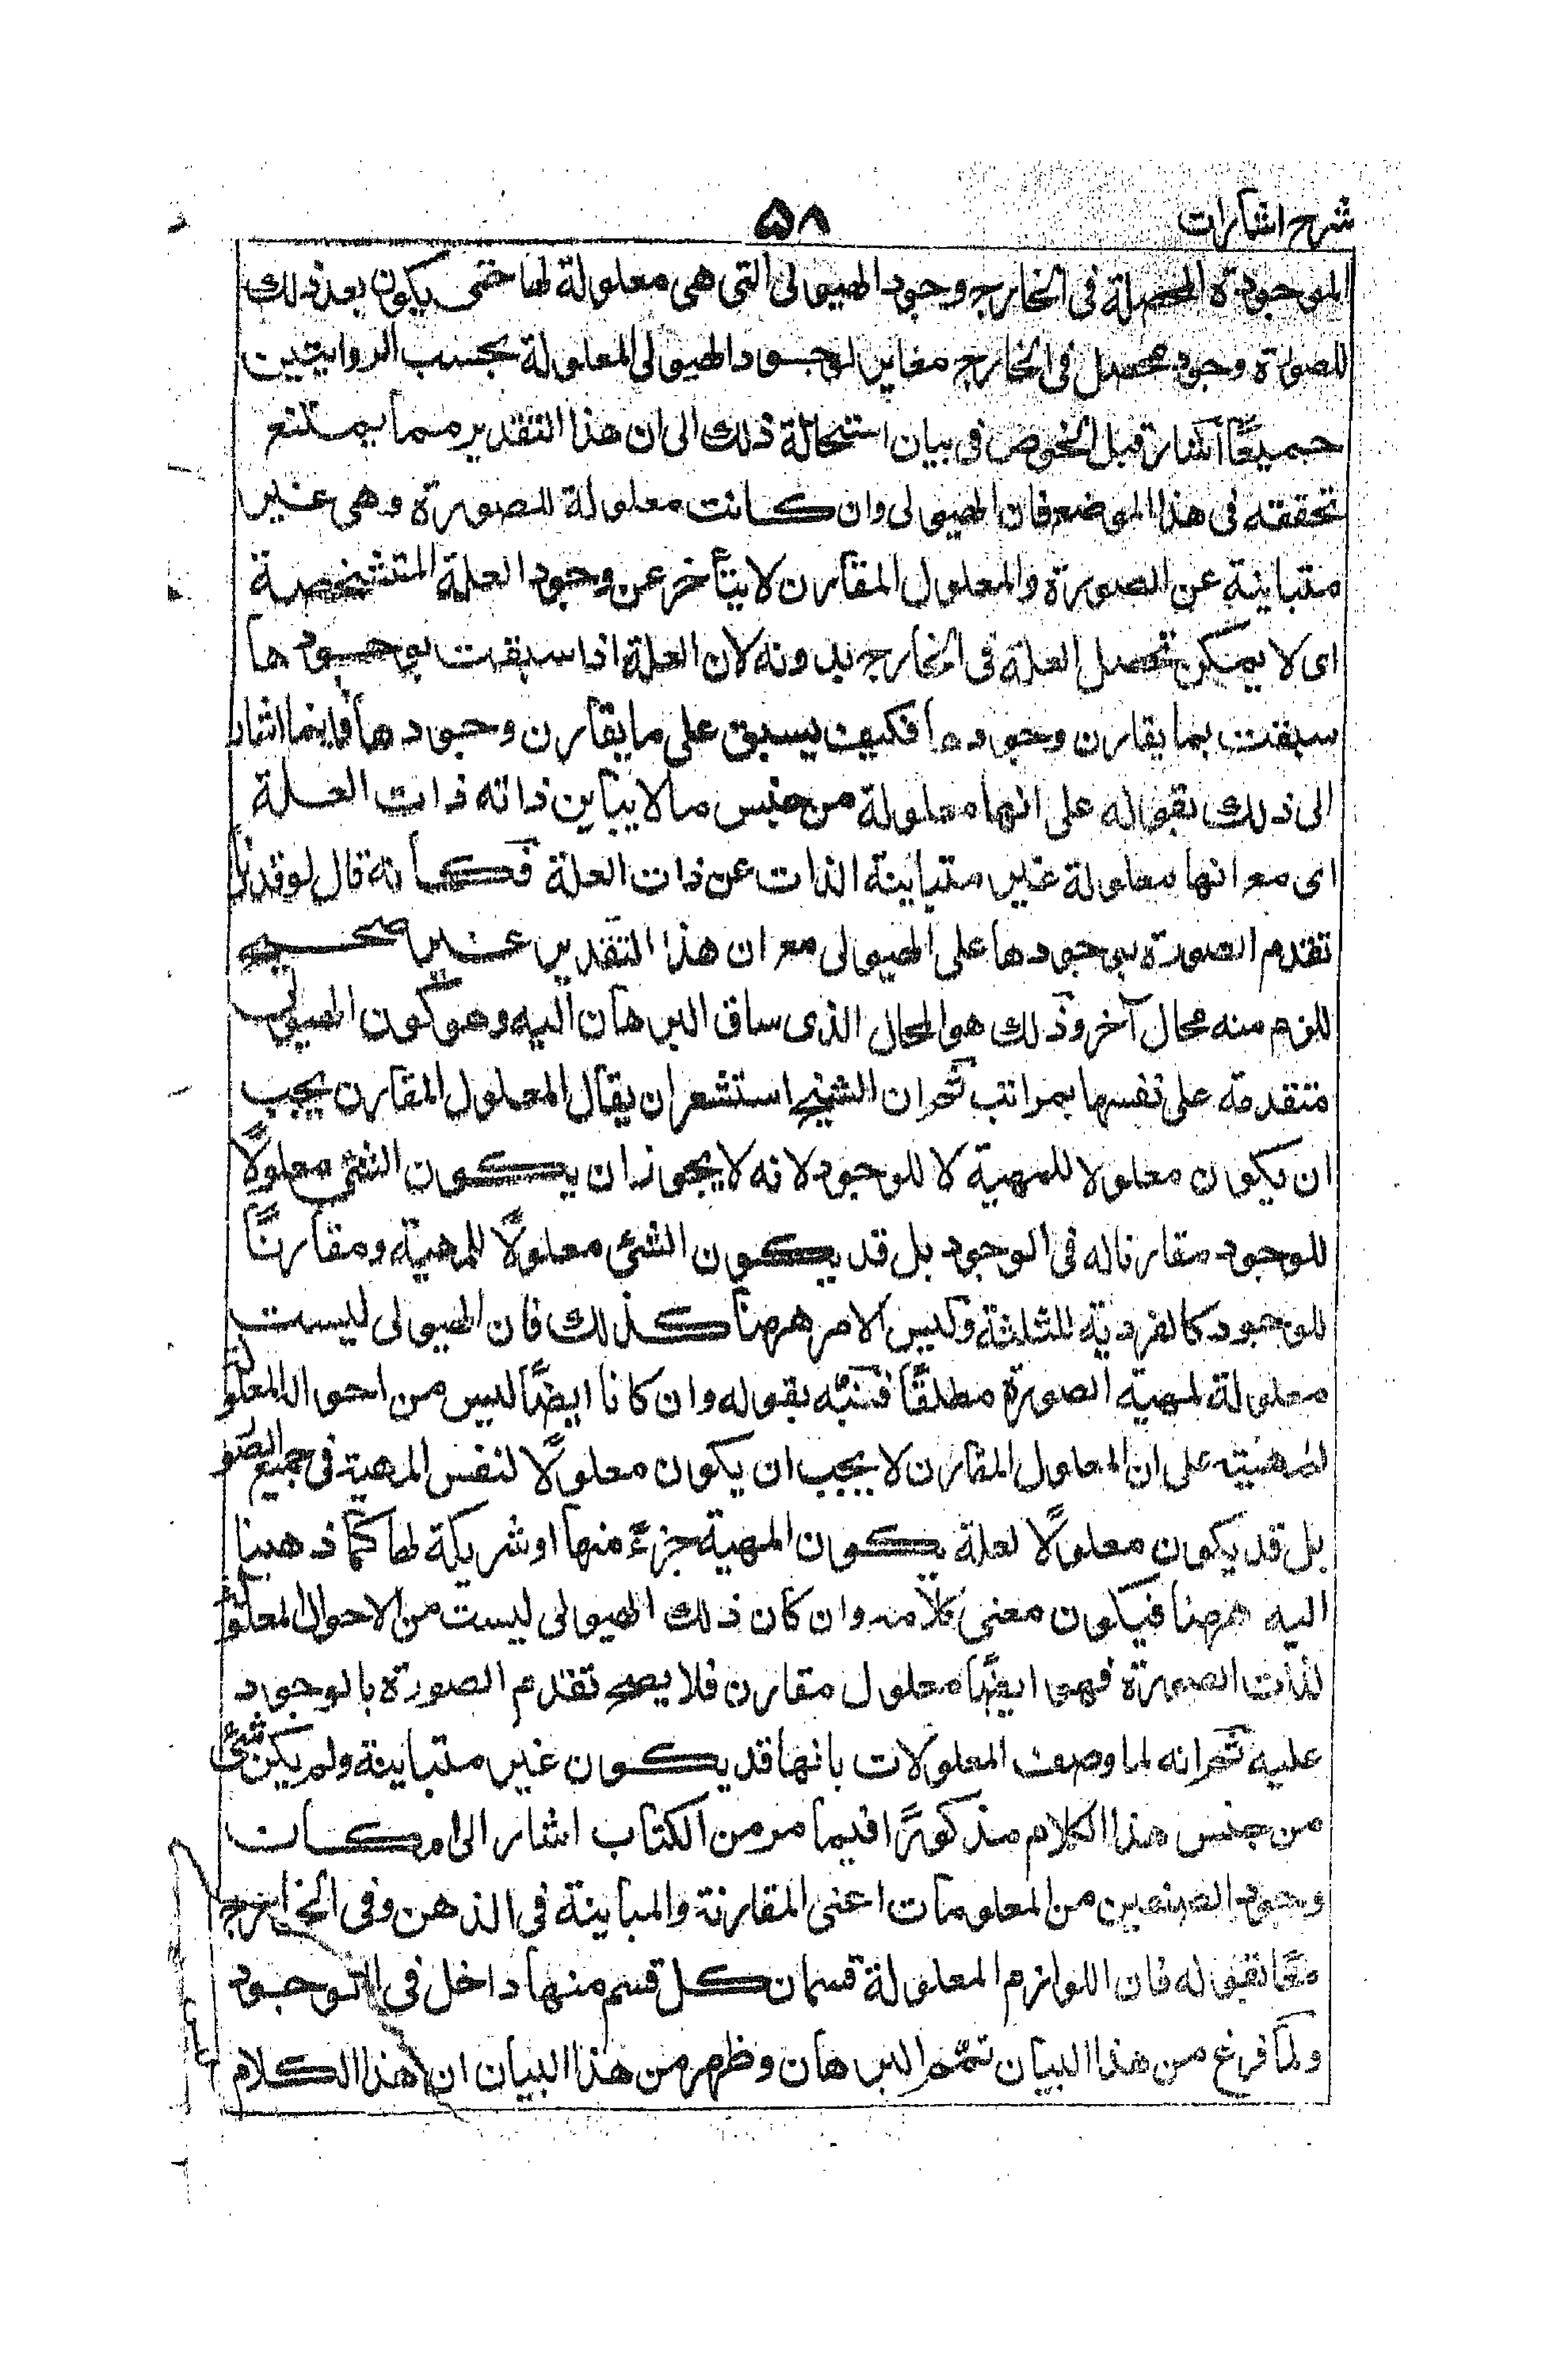 شرح اشارات
۵۸
الموجودة المحصلة فى الخارج وجود الهيولى التى هى معلولة لها حتى يكون بعد ذلك
للصورة وجود محصل فى الخارج مغاير لوجود الهيولى المعلولة بحسب الروايتين
جميعًا اشار قبل الخوض فى بيان استحالة ذلك الى ان هذا التقدير مما يمتنع
تحققه فى هذا الموضع فان الهيولى وان كانت معلولة للصورة وهى غير
متباينة عن الصورة والمعلول المقارن لا يتأخر عن وجود العلة المتشخصية
اى لا يمكن تحصل العلة فى الخارج بدونه لان العلة اذا سبقت بوجودها
سبقت بما يقارن وجودها فكيف يسبق على ما يقارن وجودها فانما اشار
الى ذلك بقوله على انها معلولة من جنس ما لا يباين ذاته ذات العلة
اى مع انها معلولة غير متباينة الذات عن ذات العلة فكأنه قال لو قدرنا
تقدم الصورة بوجودها على الهيولى مع ان هذا التقدير غير صحيح
للزم منه محال آخر وذلك هو المحال الذى ساق البرهان اليه وهو كون الهيولى
متقدمة على نفسها بمراتب ثم ان الشيخ استشعر ان يقال المعلول المقارن يجب
ان يكون معلولا للمهية لا للوجود لانه لا يجوز ان يكون الشئ معلولًا
للوجود مقارنا له فى الوجود بل قد يكون الشئ معلولًا للمهية ومقارنًا
للوجود كالفردية للثلثة وليس الامر ههنا كذلك فان الهيولى ليست
معلولة لمهية الصورة مطلقًا فنبّه بقوله وان كانا ايضًا ليس من احوال المعلولة
لمهيته على ان المعلول المقارن لا يجب ان يكون معلولًا لنفس المهية فى جميع الصور
بل قد يكون معلولًا لعلة يكون المهية جزءً منها او شريكة لها كما ذهبنا
اليه ههنا فيكون معنى كلامه وان كان ذلك الهيولى ليست من الاحوال المعلولة
لذات الصورة فهو ايضًا معلول مقارن فلا يصح تقدم الصورة بالوجود
عليه ثم انه لما وصف المعلولات بانها قد يكون غير متباينة ولم يكن شئ
من جنس هذا الكلام مذكورًا فيما مر من الكتاب اشار الى امكان
وجود الصنفين من المعلومات اعنى المقارنة والمباينة فى الذهن وفى الخارج
معًا بقوله فان اللوازم المعلولة قسمان كل قسم منها داخل فى الوجود
ولما فرغ من هذا البيان تمّم البرهان وظهر من هذا البيان ان هذا الكلام